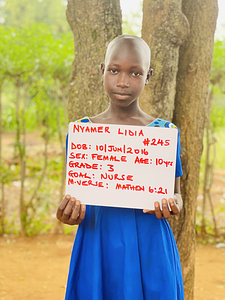 NYAMER LIDIA
#245
DOB: 10|JUN|2016
SEX: FEMALE AGE: 10yrs
GRADE: 3
GOAL: NURSE
M-VERSE: MATHEW 6:21